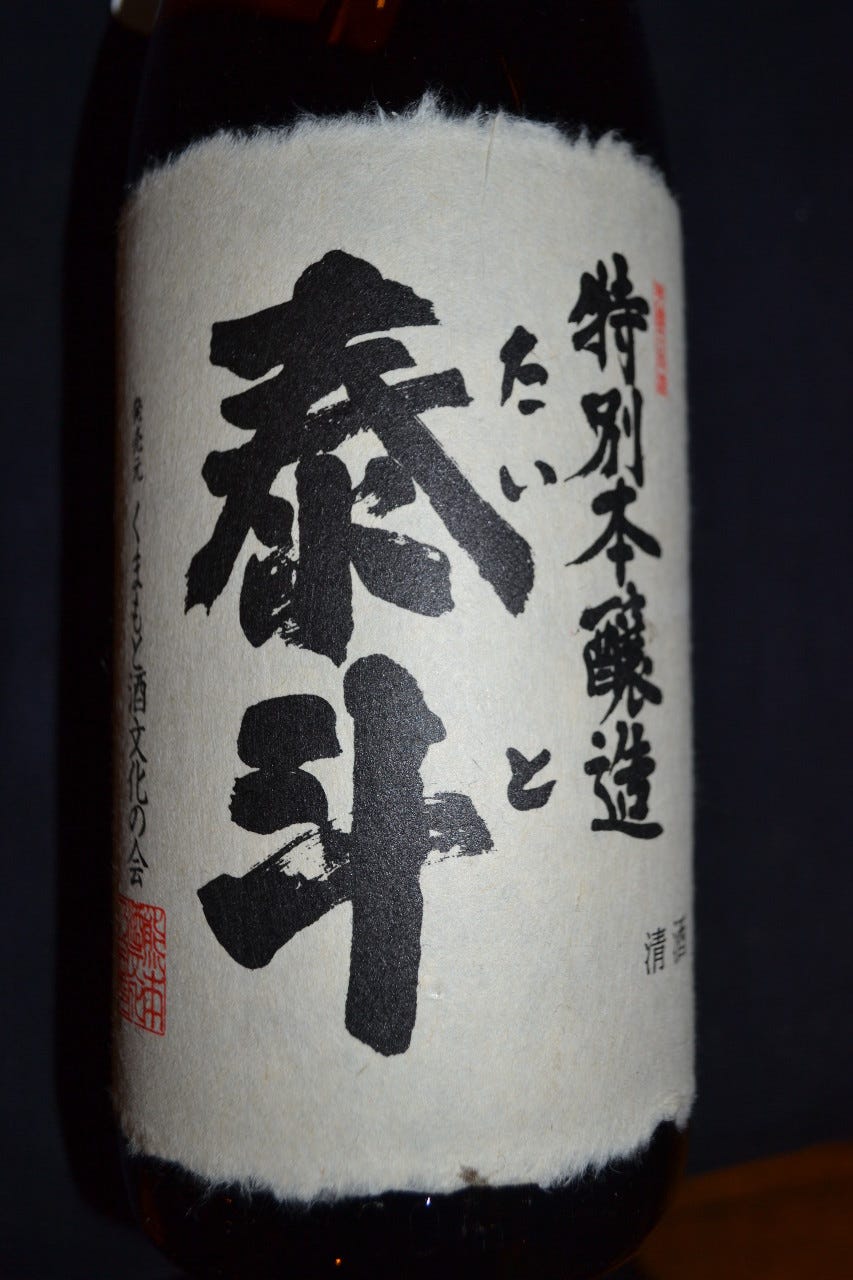 特別本醸造
たいと
泰斗
清酒
発売元 くまもと酒文化の会